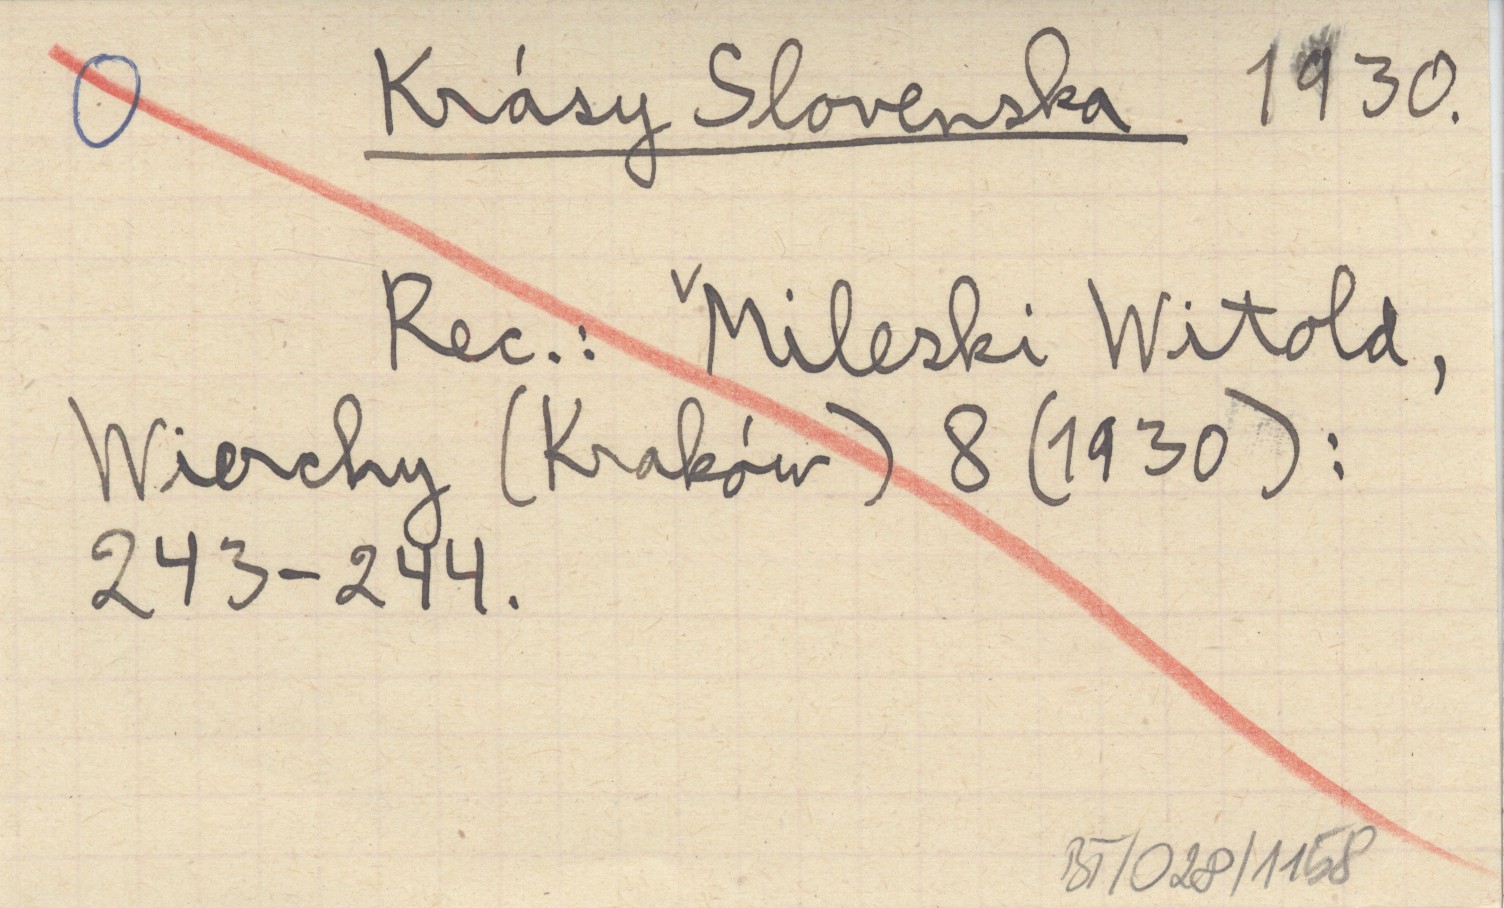 Krásy Slovenska 1930.
Rec.: ᵛMileski Witold,
Wierchy (Kraków) 8 (1930):
243-244.
BT/028/1158